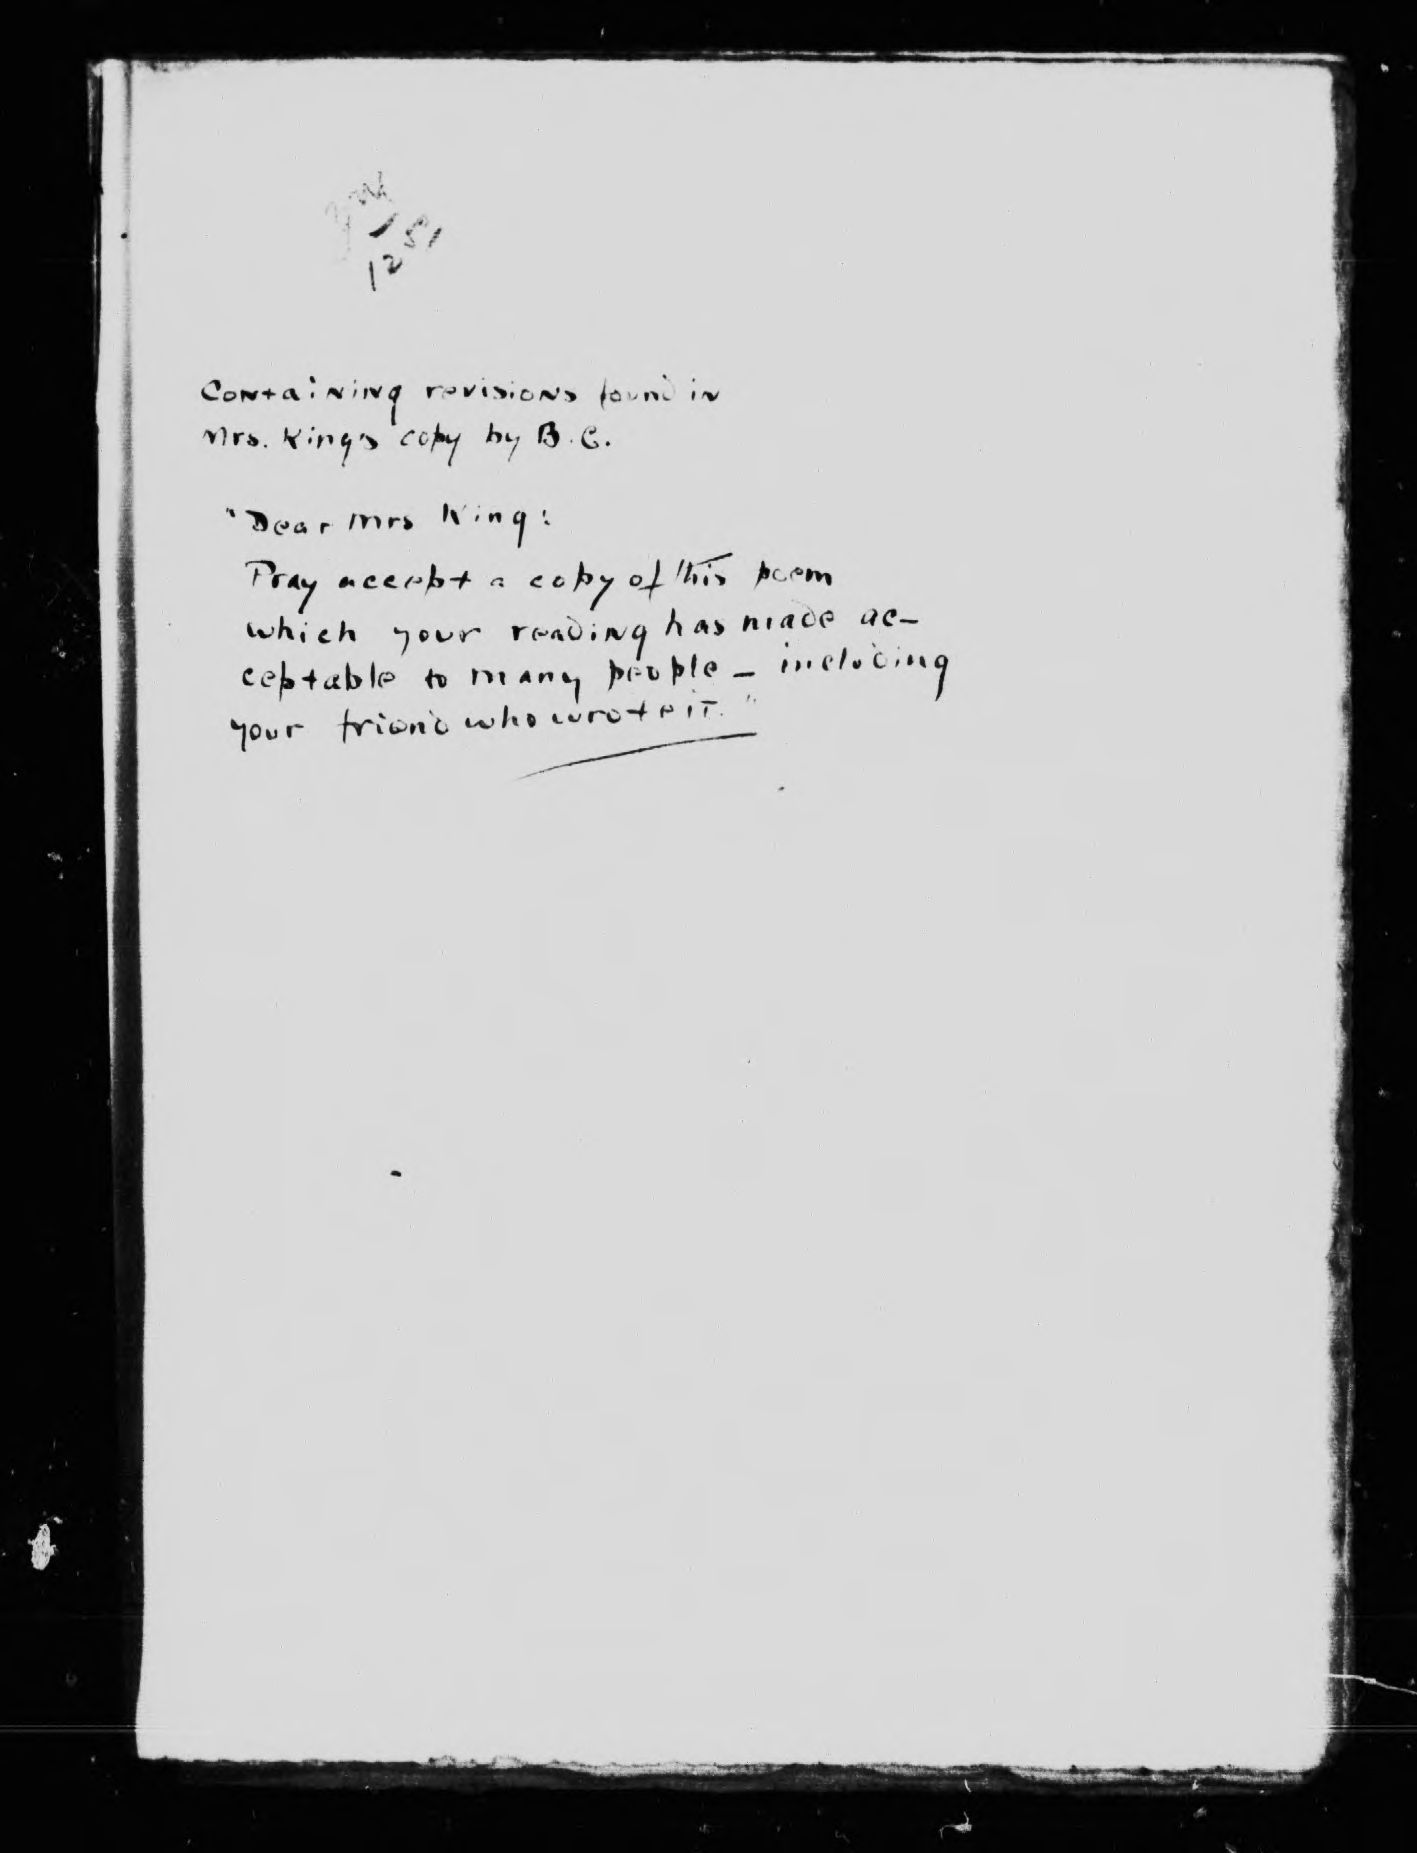 1 51
12
Containing revisions found in
Mrs. King's copy by B.C.
"Dear Mrs King:
Pray accept a copy of this poem
which your reading has made ac-
ceptable to many people – including
your friend who wrote it."